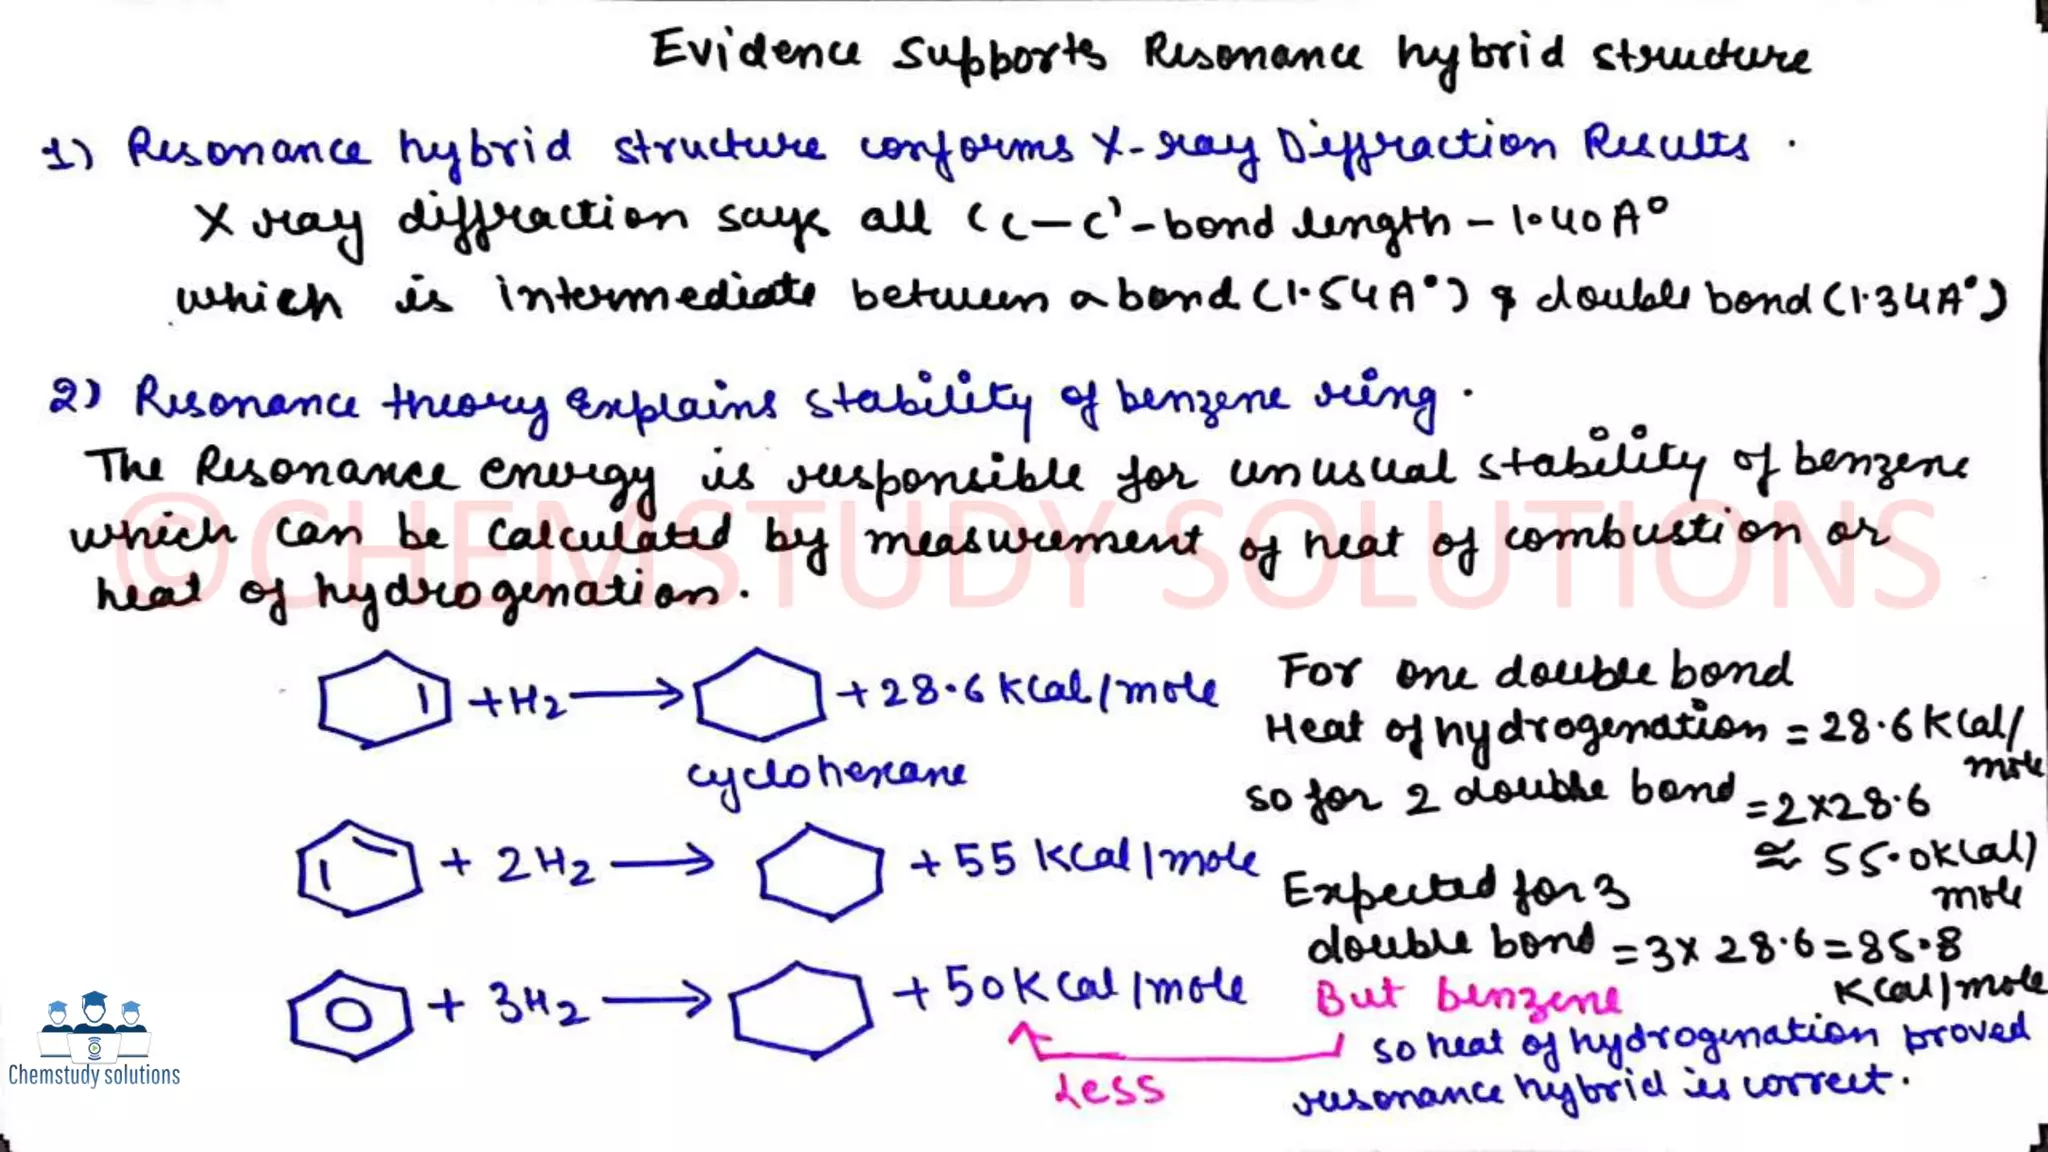 Evidence Supports Resonance hybrid structure
1) Resonance hybrid structure conforms X-ray Diffraction Results.
X ray diffraction says all 'C-C'-bond length - 1.40A°
which is intermediate between a bond (1.54A°) & double bond (1.34A°)
2) Resonance theory Explains stability of benzene ring.
The Resonance energy is responsible for unusual stability of benzene
which can be calculated by measurement of heat of combustion or
heat of hydrogenation.
©CHEMSTUDY SOLUTIONS
+H2 → +28.6 Kcal/mole
cyclohexane
+ 2H2 → +55 Kcal/mole
+ 3H2 → +50 Kcal/mole
Less
For one double bond
Heat of hydrogenation = 28.6 Kcal/
mole
so for 2 double bond = 2x28.6
≅ 55.0Kcal/
mole
Expected for 3
double bond = 3x 28.6 = 85.8
Kcal/mole
But benzene
so heat of hydrogenation proved
resonance hybrid is correct.
Chemstudy solutions